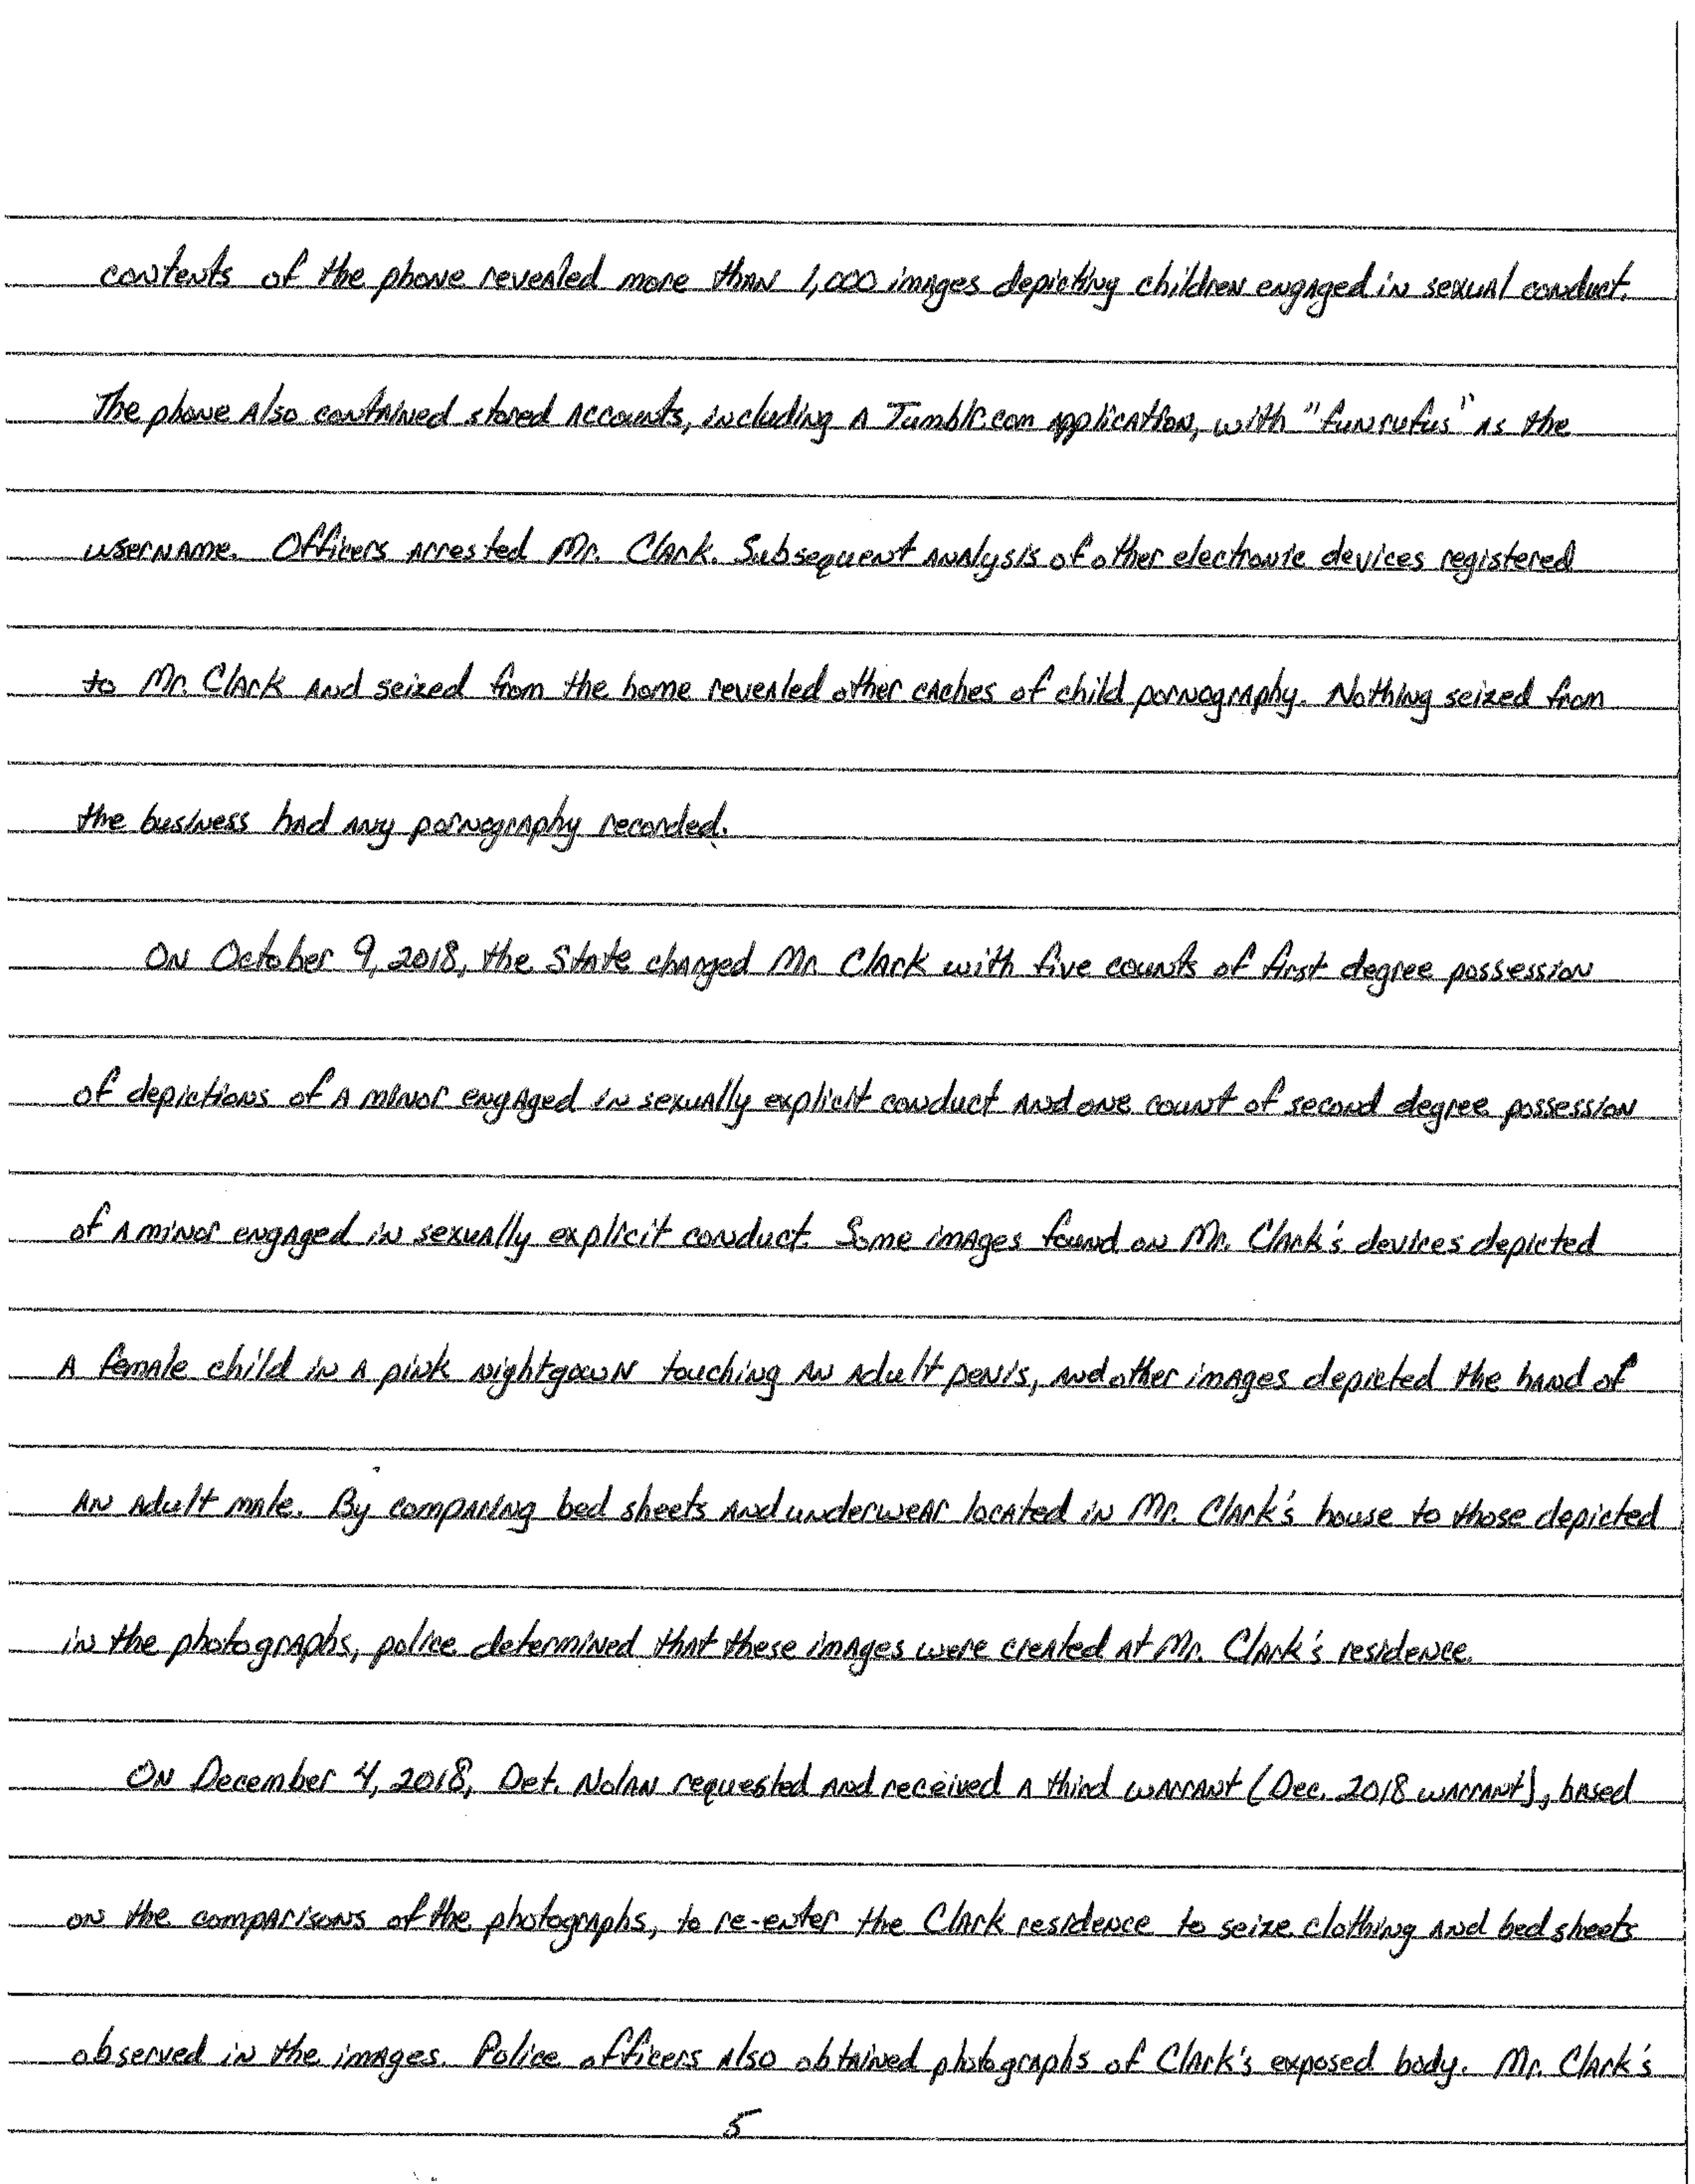 contents of the phone revealed more than 1,000 images depicting children engaged in sexual conduct.
The phone also contained stored accounts, including a Tumblr.com application, with "funrufus" as the
username. Officers arrested Mr. Clark. Subsequent analysis of other electronic devices registered
to Mr. Clark and seized from the home revealed other caches of child pornography. Nothing seized from
the business had any pornography recorded.
On October 9, 2018, the State charged Mr. Clark with five counts of first degree possession
of depictions of a minor engaged in sexually explicit conduct and one count of second degree possession
of a minor engaged in sexually explicit conduct. Some images found on Mr. Clark's devices depicted
a female child in a pink nightgown touching an adult penis, and other images depicted the hand of
an adult male. By comparing bed sheets and underwear located in Mr. Clark's house to those depicted
in the photographs, police determined that these images were created at Mr. Clark's residence.
On December 4, 2018, Det. Nolan requested and received a third warrant (Dec. 2018 warrant), based
on the comparisons of the photographs, to re-enter the Clark residence to seize clothing and bed sheets
observed in the images. Police officers also obtained photographs of Clark's exposed body. Mr. Clark's
5